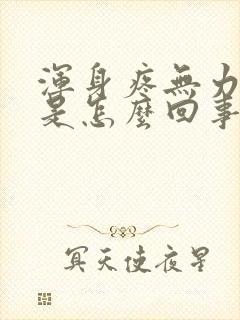 渾身疼無力
是怎麼回事
冥天使夜星